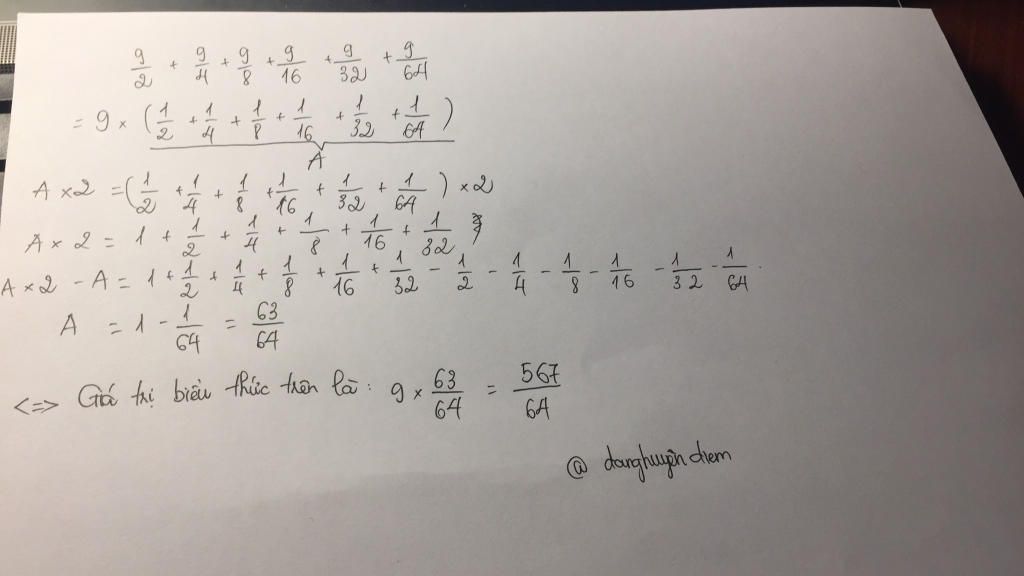 9/2 + 9/4 + 9/8 + 9/16 + 9/32 + 9/64
= 9 × (1/2 + 1/4 + 1/8 + 1/16 + 1/32 + 1/64)
A
A × 2 = (1/2 + 1/4 + 1/8 + 1/16 + 1/32 + 1/64) × 2
A × 2 = 1 + 1/2 + 1/4 + 1/8 + 1/16 + 1/32
A × 2 - A = 1 + 1/2 + 1/4 + 1/8 + 1/16 + 1/32 - 1/2 - 1/4 - 1/8 - 1/16 - 1/32 - 1/64.
A = 1 - 1/64 = 63/64
<=> Giá trị biểu thức trên là: 9 × 63/64 = 567/64
@ danghuyendiem